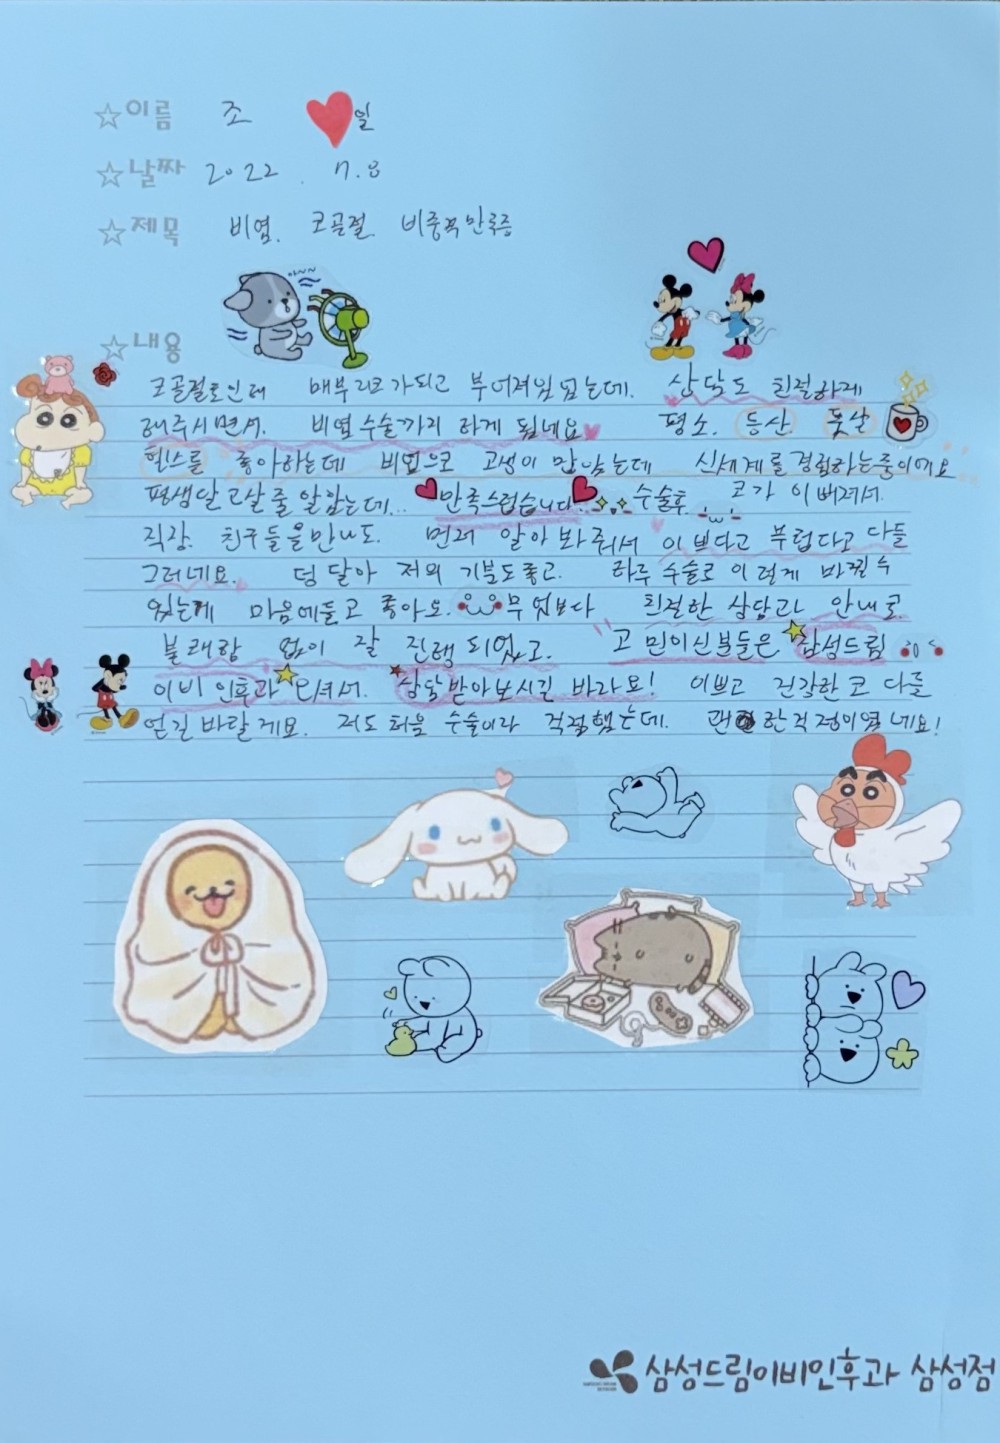 ☆이름 조 일
☆날짜 2022. 7.8
☆제목 비염. 코골절. 비중격만곡증
☆내용
코골절로인해 매부리코가되고 부어져있었는데. 상담도 친절하게
해주시면서. 비염수술까지 하게 됬네요 평소. 등산. 풋살
헬스를 좋아하는데 비염으로 고생이 많았는데 신세계를경험하는중이에요
평생달고살줄알았는데... 만족스럽습니다. 수술후 코가 이뻐져서.
직장. 친구들을만나도. 먼저 알아봐줘서 이쁘다고 부럽다고 다들
그러네요. 덩달아 저의 기분도좋고. 하루 수술로 이렇게 바뀔수
있는게 마음에들고 좋아요. 무엇보다 친절한 상담과 안내로
불쾌함 없이 잘 진행되었고. 고민이신분들은 삼성드림
이비인후과 오셔서. 상담받아보시길 바라요! 이쁘고 건강한코 다들
얻길바랄게요. 저도처음 수술이라 걱정했는데. 괜한걱정이였네요!
삼성드림이비인후과 삼성점